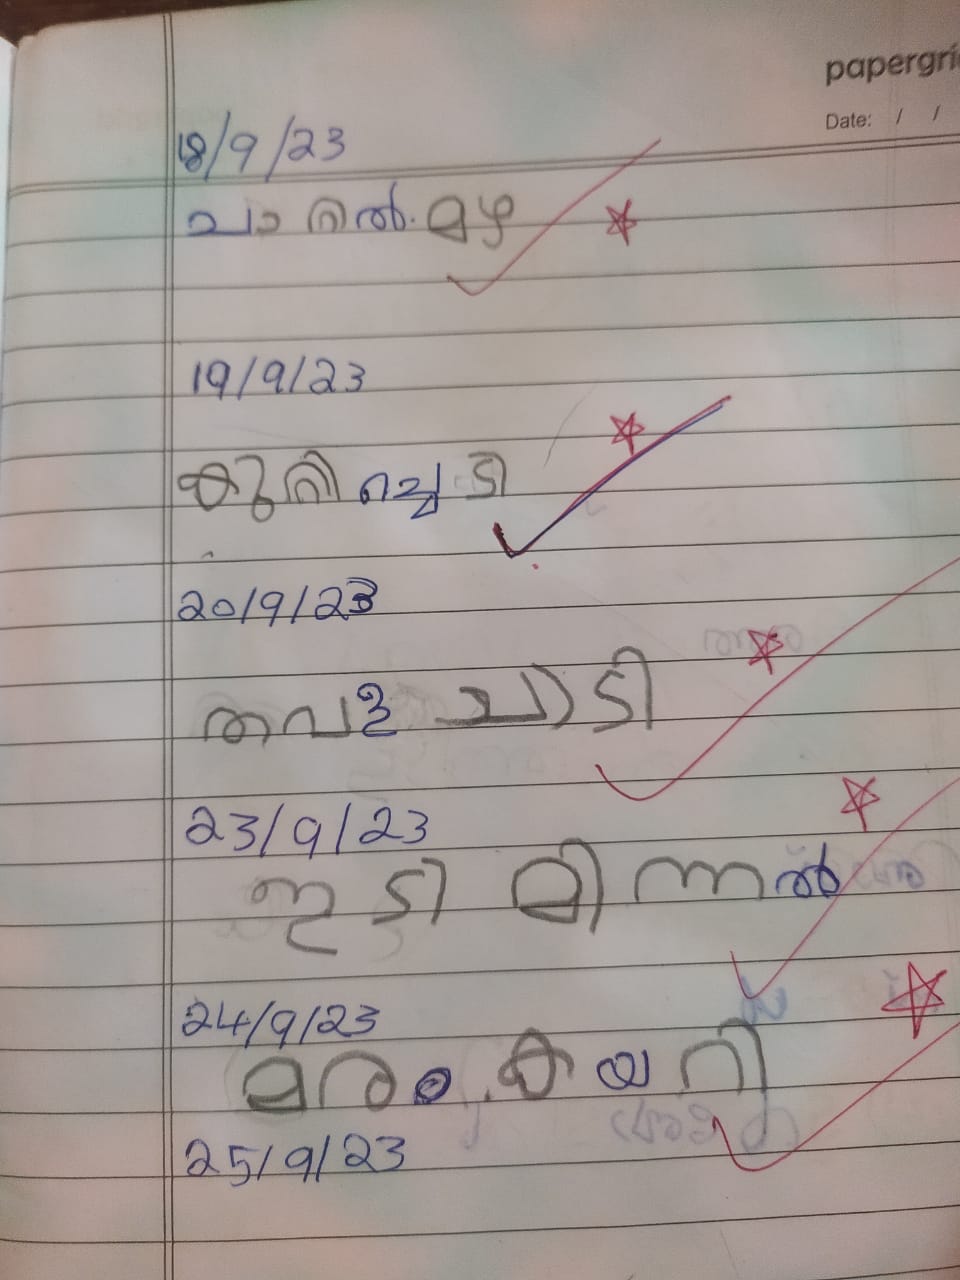 papergri
Date: / /
18/9/23
ചാറ്റൽ മഴ
19/9/23
കുരിച്ചെടി
20/9/23
തവള ചാടി
23/9/23
ഇടി മിന്നൽ
24/9/23
മരം കയറി
25/9/23